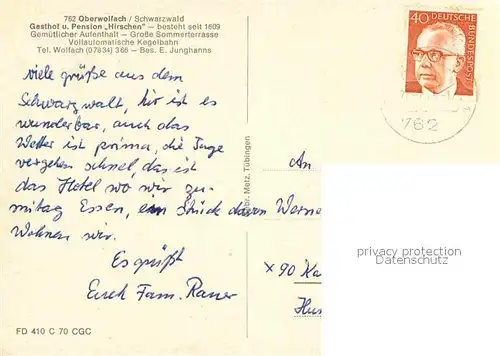 762 Oberwolfach / Schwarzwald
Gasthof u. Pension „Hirschen" – besteht seit 1609
Gemütlicher Aufenthalt – Große Sommerterrasse
Vollautomatische Kegelbahn
Tel. Wolfach (07834) 366 – Bes. E. Junghanns
viele grüße aus dem
Schwarzwalt, hir ist es
wunderbar, auch das
Wetter ist prima, die Tage
vergehen schnel, das ist
das Hotel wo wir zu-
mitag Essen, ein Stück davon
Wohnen wir.
Es grüßt
Euch Fam. Rauer
FD 410 C 70 CGC
Gebr. Metz, Tübingen
40 DEUTSCHE BUNDESPOST
762
An
Werne
x 90 Ka
privacy protection
Datenschutz